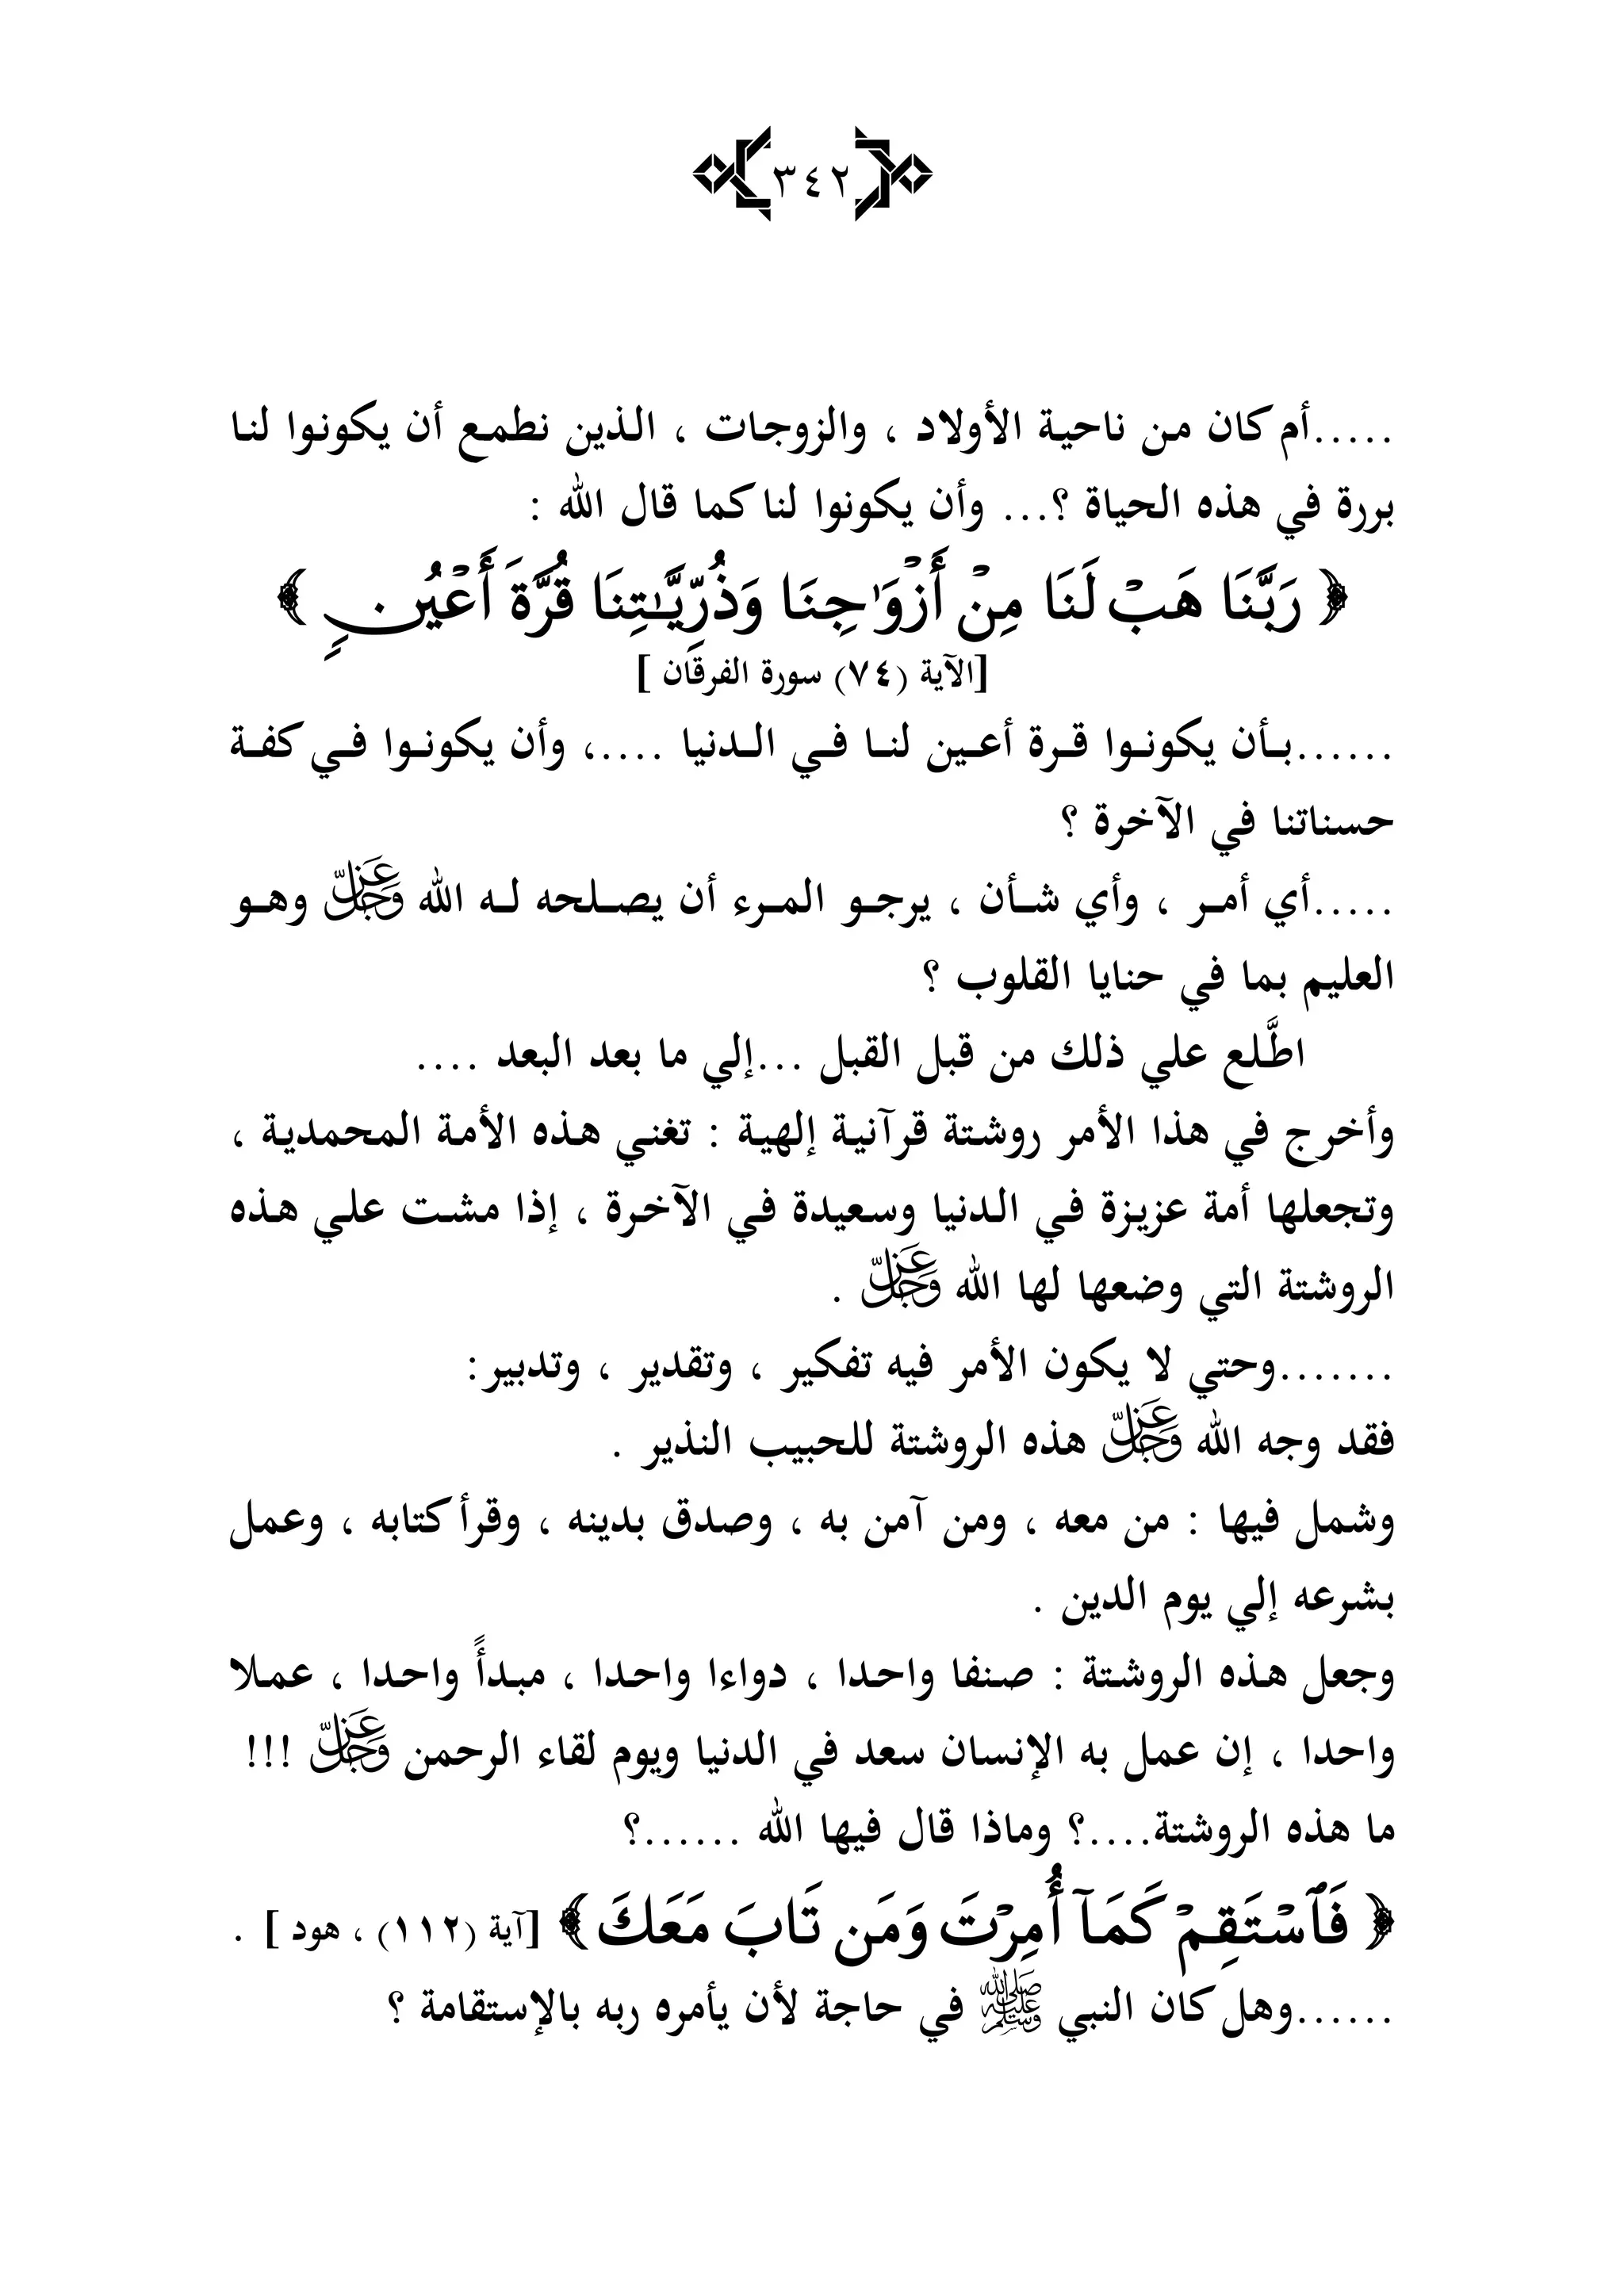 ٣٤٢
.....أم كان من ناحية الأولاد ، والزوجات ، الذين نطمع أن يكونوا لنا
بررة في هذه الحياة ؟... وأن يكونوا لنا كما قال الله :
﴿ رَبَّنَا هَبۡ لَنَا مِنۡ أَزۡوَٰجِنَا وَذُرِّيَّٰتِنَا قُرَّةَ أَعۡيُنٖ ﴾
[الآية (٧٤) سورة الفرقان ]
......بأن يكونوا قرة أعين لنا في الدنيا ....، وأن يكونوا في كفة
حسناتنا في الآخرة ؟
.....أي أمر ، وأي شأن ، يرجو المرء أن يصلحه له الله عَزَّ وَجَلَّ وهو
العليم بما في حنايا القلوب ؟
اطَّلع علي ذلك من قبل القبل ...إلي ما بعد البعد ....
وأخرج في هذا الأمر روشتة قرآنية إلهية : تغني هذه الأمة المحمدية ،
وتجعلها أمة عزيزة في الدنيا وسعيدة في الآخرة ، إذا مشت علي هذه
الروشتة التي وضعها لها الله عَزَّ وَجَلَّ .
.......وحتي لا يكون الأمر فيه تفكير ، وتقدير ، وتدبير:
فقد وجه الله عَزَّ وَجَلَّ هذه الروشتة للحبيب النذير .
وشمل فيها : من معه ، ومن آمن به ، وصدق بدينه ، وقرأ كتابه ، وعمل
بشرعه إلي يوم الدين .
وجعل هذه الروشتة : صنفا واحدا ، دواءا واحدا ، مبدأً واحدا ، عملا
واحدا ، إن عمل به الإنسان سعد في الدنيا ويوم لقاء الرحمن عَزَّ وَجَلَّ !!!
ما هذه الروشتة....؟ وماذا قال فيها الله ......؟
﴿ فَٱسۡتَقِمۡ كَمَآ أُمِرۡتَ وَمَن تَابَ مَعَكَ ﴾ [آية (١١٢) ، هود ] .
......وهل كان النبي ﷺ في حاجة لأن يأمره ربه بالإستقامة ؟